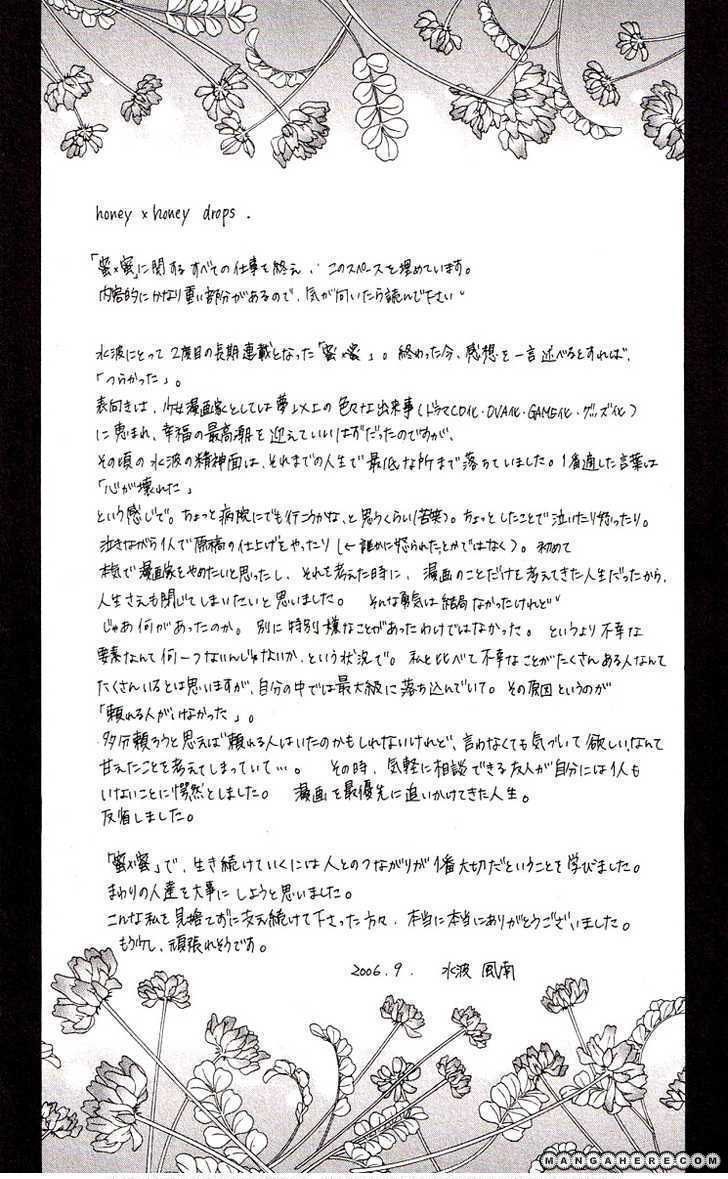 honey × honey drops .
「蜜×蜜」に関するすべての仕事を終え、このスペースを埋めています。
内容的にかなり重い部分があるので、気が向いたら読んで下さい。
水波にとって2度目の長期連載となった「蜜×蜜」。終わった今、感想を一言述べるとすれば、
「つらかった」。
表向きは、少女漫画家としては夢以上の色々な出来事(ドラマCD化・OVA化・GAME化・グッズ化)
に恵まれ、幸福の最高潮を迎えていいはずだったのですが、
その頃の水波の精神面は、それまでの人生で最低な所まで落ちていました。1番適した言葉は
「心が壊れた」
という感じで。ちょっと病院にでも行こうかな、と思うくらい(苦笑)。ちょっとしたことで泣いたり怒ったり。
泣きながら1人で原稿の仕上げをやったり(←誰かに怒られたとかではなく)。初めて
本気で漫画家をやめたいと思ったし、それを考えた時に、漫画のことだけを考えてきた人生だったから、
人生さえも閉じてしまいたいと思いました。 そんな勇気は結局なかったけれど。
じゃあ何があったのか。別に特別嫌なことがあったわけではなかった。というより不幸な
要素なんて何一つないんじゃないか、という状況で。私と比べて不幸なことがたくさんある人なんて
たくさんいるとは思いますが、自分の中では最大級に落ち込んでいて。その原因というのが
「頼れる人がいなかった」。
多分頼ろうと思えば頼れる人はいたのかもしれないけれど、言わなくても気づいて欲しいなんて
甘えたことを考えてしまっていて…。 その時、気軽に相談できる友人が自分には1人も
いないことに愕然としました。 漫画を最優先に追いかけてきた人生。
反省しました。
「蜜×蜜」で、生き続けていくには人とのつながりが1番大切だということを学びました。
まわりの人達を大事にしようと思いました。
こんな私を見捨てずに支え続けて下さった方々、本当に本当にありがとうございました。
もう少し、頑張れそうです。
2006.9. 水波 風南
MANGAHERE.COM